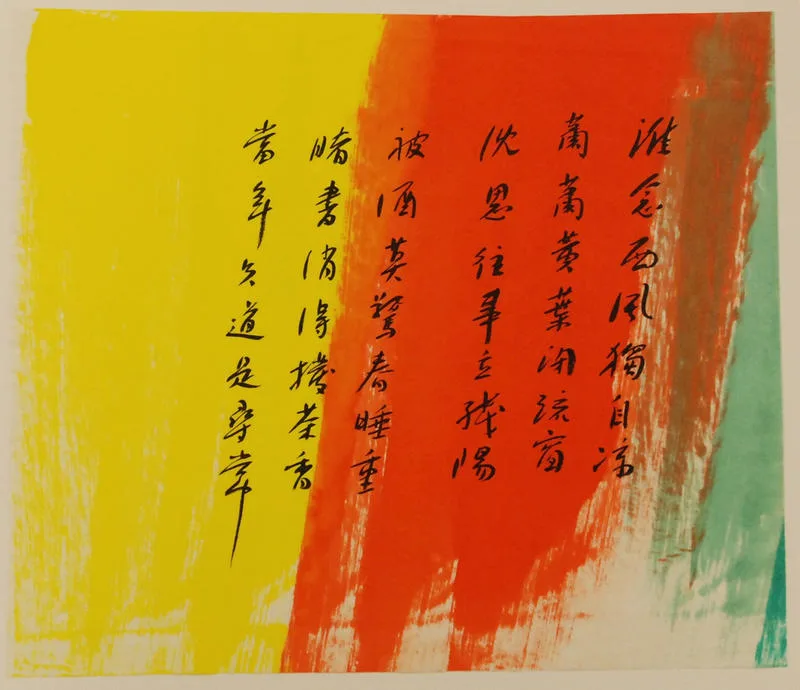 誰念西風獨自凉
蕭蕭黄葉闭疏窗
沈思往事立殘陽
被酒莫驚春睡重
賭書消得撥茶香
當年只道是尋常